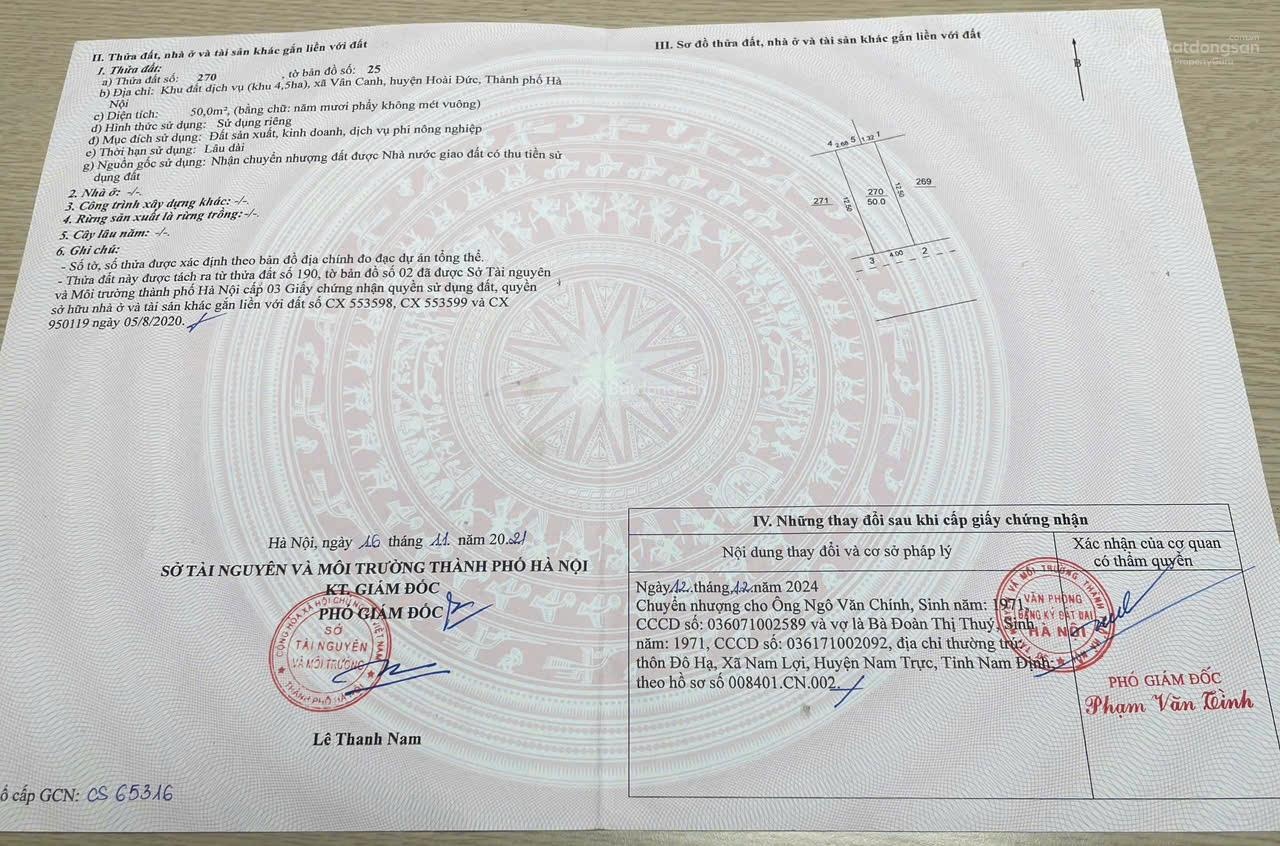 II. Thửa đất, nhà ở và tài sản khác gắn liền với đất
1. Thửa đất:
a) Thửa đất số: 270 , tờ bản đồ số: 25
b) Địa chỉ: Khu đất dịch vụ (khu 4,5ha), xã Vân Canh, huyện Hoài Đức, Thành phố Hà
Nội
c) Diện tích: 50,0m², (bằng chữ: năm mươi phẩy không mét vuông)
d) Hình thức sử dụng: Sử dụng riêng
đ) Mục đích sử dụng: Đất sản xuất, kinh doanh, dịch vụ phi nông nghiệp
e) Thời hạn sử dụng: Lâu dài
g) Nguồn gốc sử dụng: Nhận chuyển nhượng đất được Nhà nước giao đất có thu tiền sử
dụng đất
2. Nhà ở: -/-.
3. Công trình xây dựng khác: -/-.
4. Rừng sản xuất là rừng trồng: -/-.
5. Cây lâu năm: -/-.
6. Ghi chú:
- Số tờ, số thửa được xác định theo bản đồ địa chính đo đạc dự án tổng thể.
- Thửa đất này được tách ra từ thửa đất số 190, tờ bản đồ số 02 đã được Sở Tài nguyên
và Môi trường thành phố Hà Nội cấp 03 Giấy chứng nhận quyền sử dụng đất, quyền
sở hữu nhà ở và tài sản khác gắn liền với đất số CX 553598, CX 553599 và CX
950119 ngày 05/8/2020.
Hà Nội, ngày 16 tháng 11 năm 2021
SỞ TÀI NGUYÊN VÀ MÔI TRƯỜNG THÀNH PHỐ HÀ NỘI
KT. GIÁM ĐỐC
PHÓ GIÁM ĐỐC
CỘNG HÒA XÃ HỘI CHỦ NGHĨA VIỆT NAM
SỞ
TÀI NGUYÊN
VÀ MÔI TRƯỜNG
THÀNH PHỐ HÀ NỘI
Lê Thanh Nam
ổ cấp GCN: CS 65316
III. Sơ đồ thửa đất, nhà ở và tài sản khác gắn liền với đất
Batdongsan
.com.vn
by PropertyGuru
B
4 2.68 5 1.32 1
269
270
50.0
271
12.50
12.50
3 4.00 2
Batdongsan
IV. Những thay đổi sau khi cấp giấy chứng nhận
Nội dung thay đổi và cơ sở pháp lý
Xác nhận của cơ quan
có thẩm quyền
Ngày 12 tháng 12 năm 2024
Chuyển nhượng cho Ông Ngô Văn Chính, Sinh năm: 1971,
CCCD số: 036071002589 và vợ là Bà Đoàn Thị Thuý, Sinh
năm: 1971, CCCD số: 036171002092, địa chỉ thường trú:
thôn Đô Hạ, Xã Nam Lợi, Huyện Nam Trực, Tỉnh Nam Định;
theo hồ sơ số 008401.CN.002.
VĂN PHÒNG
ĐĂNG KÝ ĐẤT ĐAI
HÀ NỘI
PHÓ GIÁM ĐỐC
Phạm Văn Tình